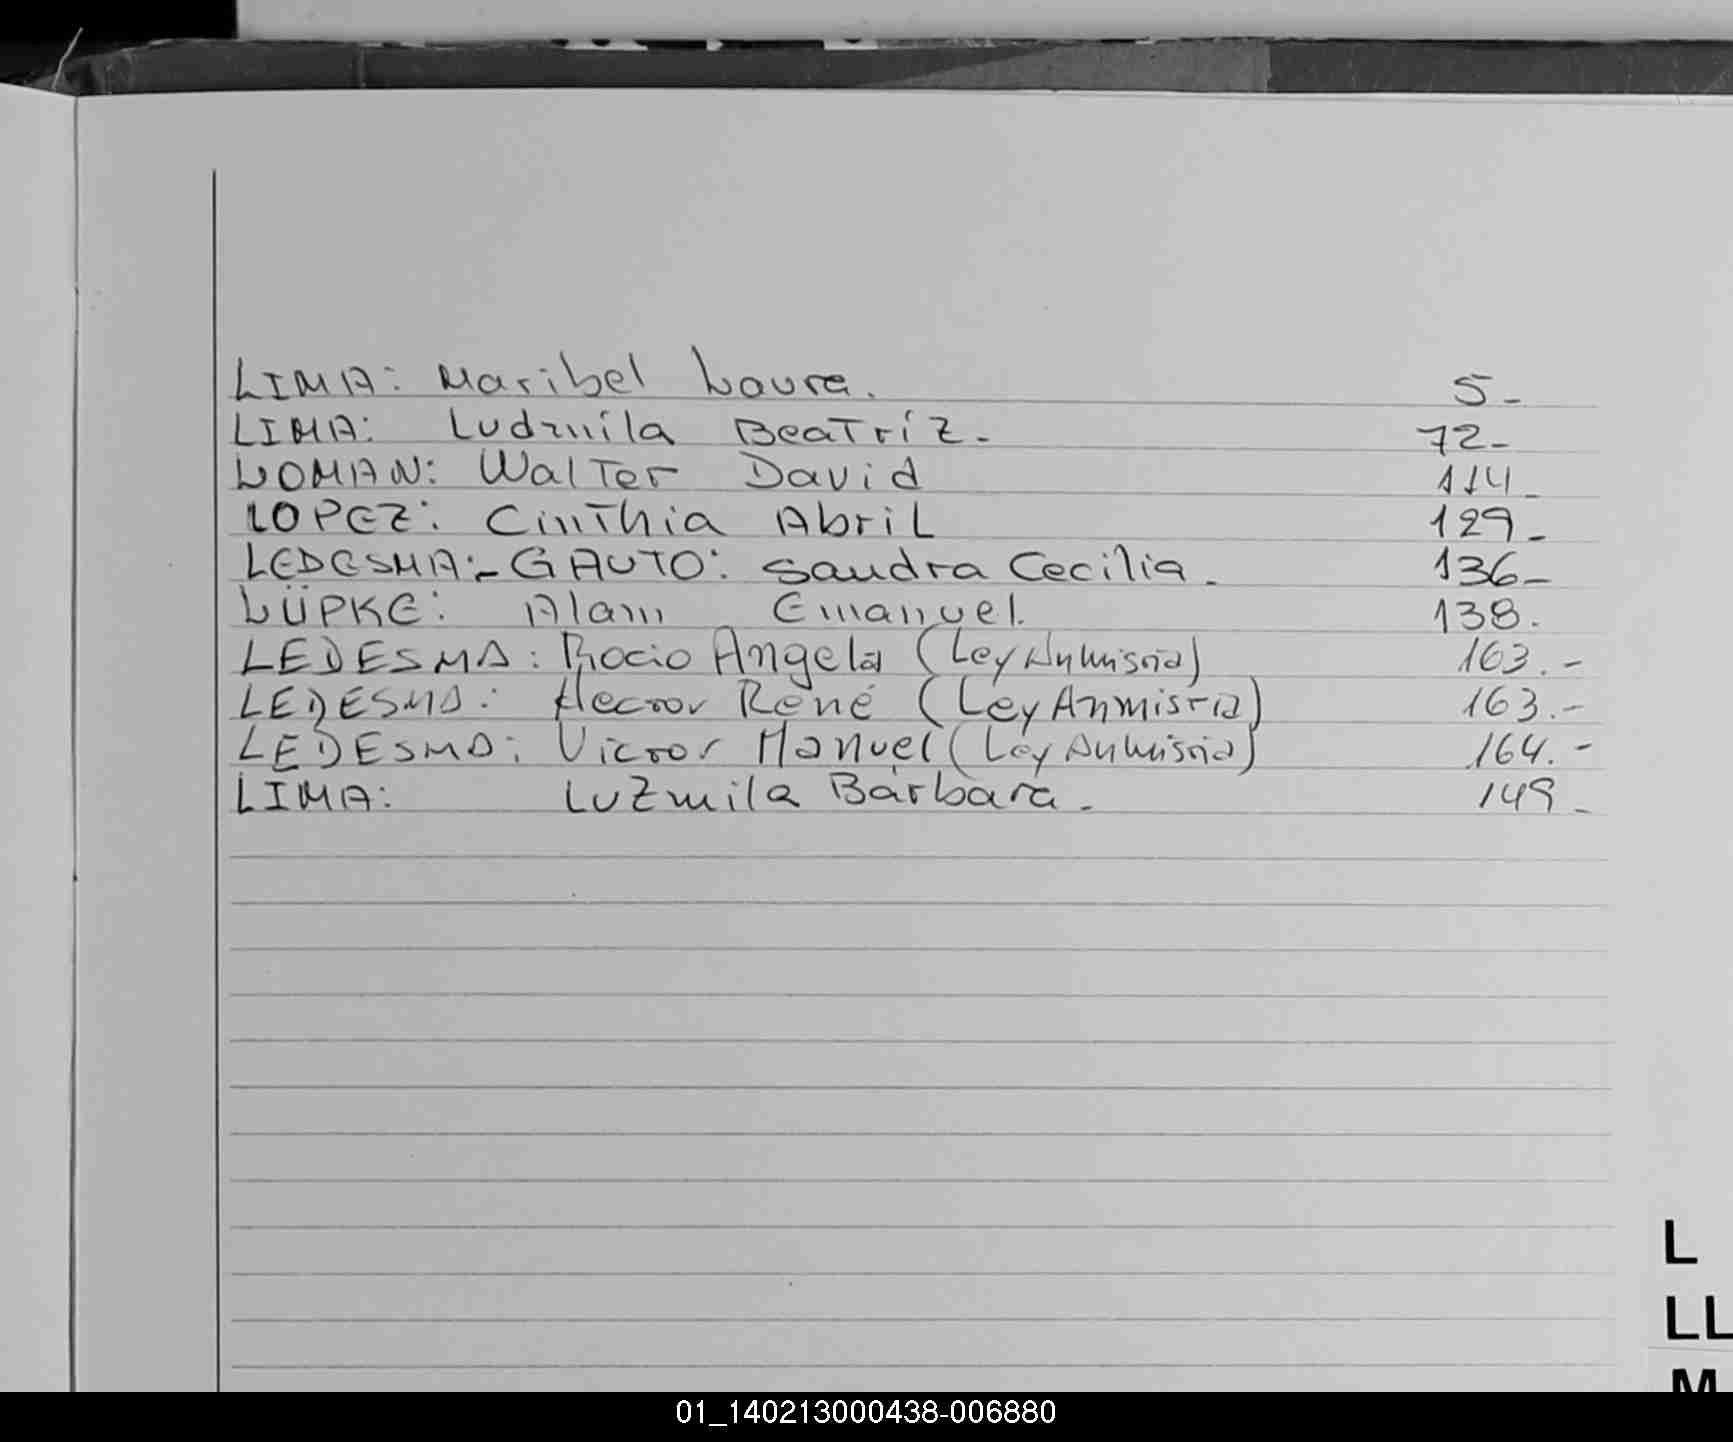 LIMA: Maribel Laura. 5-
LIMA: Ludmila Beatríz- 72-
LOMAN: Walter David 114-
LOPEZ: Cinthia Abril 129-
LEDESMA:-GAUTO: Sandra Cecilia. 136-
LÜPKE: Alam Emanuel. 138.
LEDESMA: Rocio Angela (Ley Anmistia) 163.-
LEDESMA: Hector René (Ley Anmistia) 163.-
LEDESMA: Victor Manuel (Ley Anmistia) 164.-
LIMA: LuZmila Bárbara- 149-
L
LL
M
01_140213000438-006880